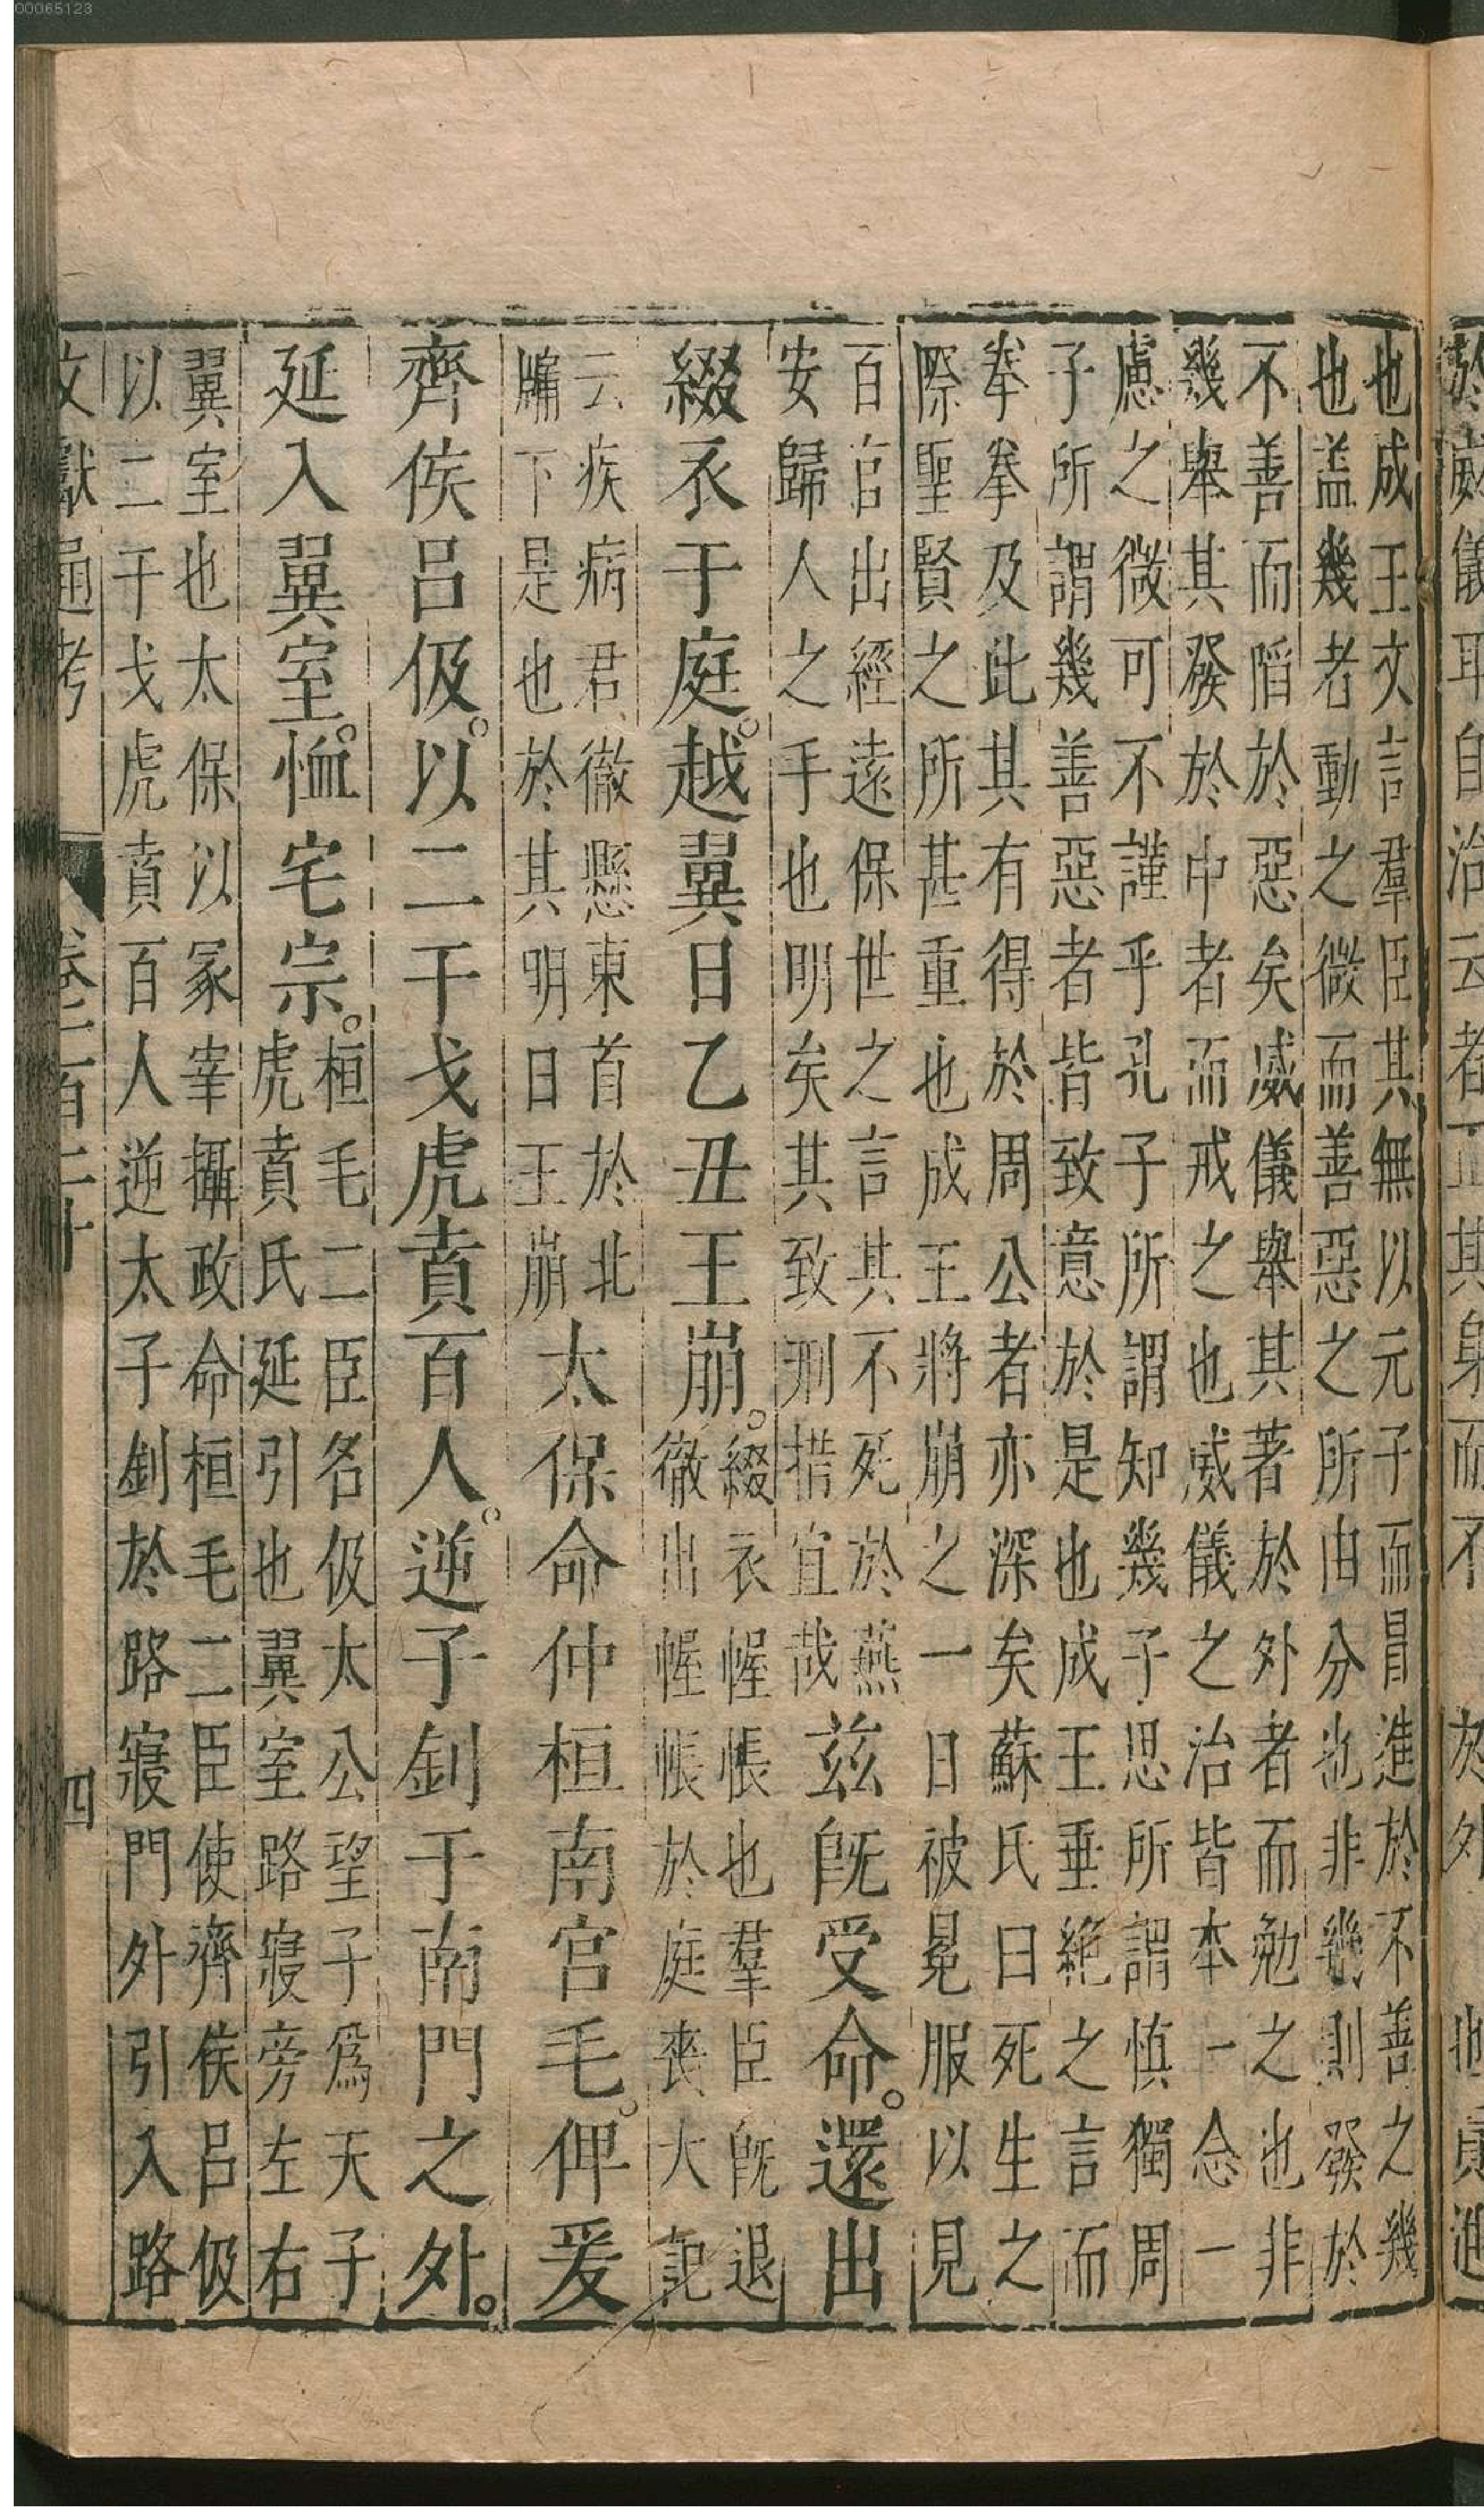 00065123
也成王文言羣臣其無以元子而冒進於不善之幾
也盖幾者動之微而善惡之所由分也非幾則發於
不善而陷於惡矣威儀舉其著於外者而勉之也非
幾舉其發於中者而戒之也威儀之治皆本一念一
慮之微可不謹乎孔子所謂知幾子思所謂慎獨周
子所謂幾善惡者皆致意於是也成王垂絶之言而
拳拳及此其有得於周公者亦深矣蘇氏曰死生之
際聖賢之所甚重也成王將崩之一日被冕服以見
百官出經遠保世之言其不死於燕
安歸人之手也明矣其致刑措宜哉
兹旣受命。還出
綴衣于庭。越翼日乙丑王崩。
綴衣幄帳也羣臣旣退
徹出幄帳於庭喪大記
云疾病君徹懸東首於北
牖下是也於其明日王崩
太保命仲桓南宮毛。俾爰
齊侯呂伋。以二干戈虎賁百人。逆子釗于南門之外。
延入翼室。恤宅宗。
桓毛二臣名伋太公望子爲天子
虎賁氏延引也翼室路寢旁左右
翼室也太保以冢宰攝政命桓毛二臣使齊侯呂伋
以二干戈虎賁百人逆太子釗於路寢門外引入路
文獻通考
卷二百二十
四